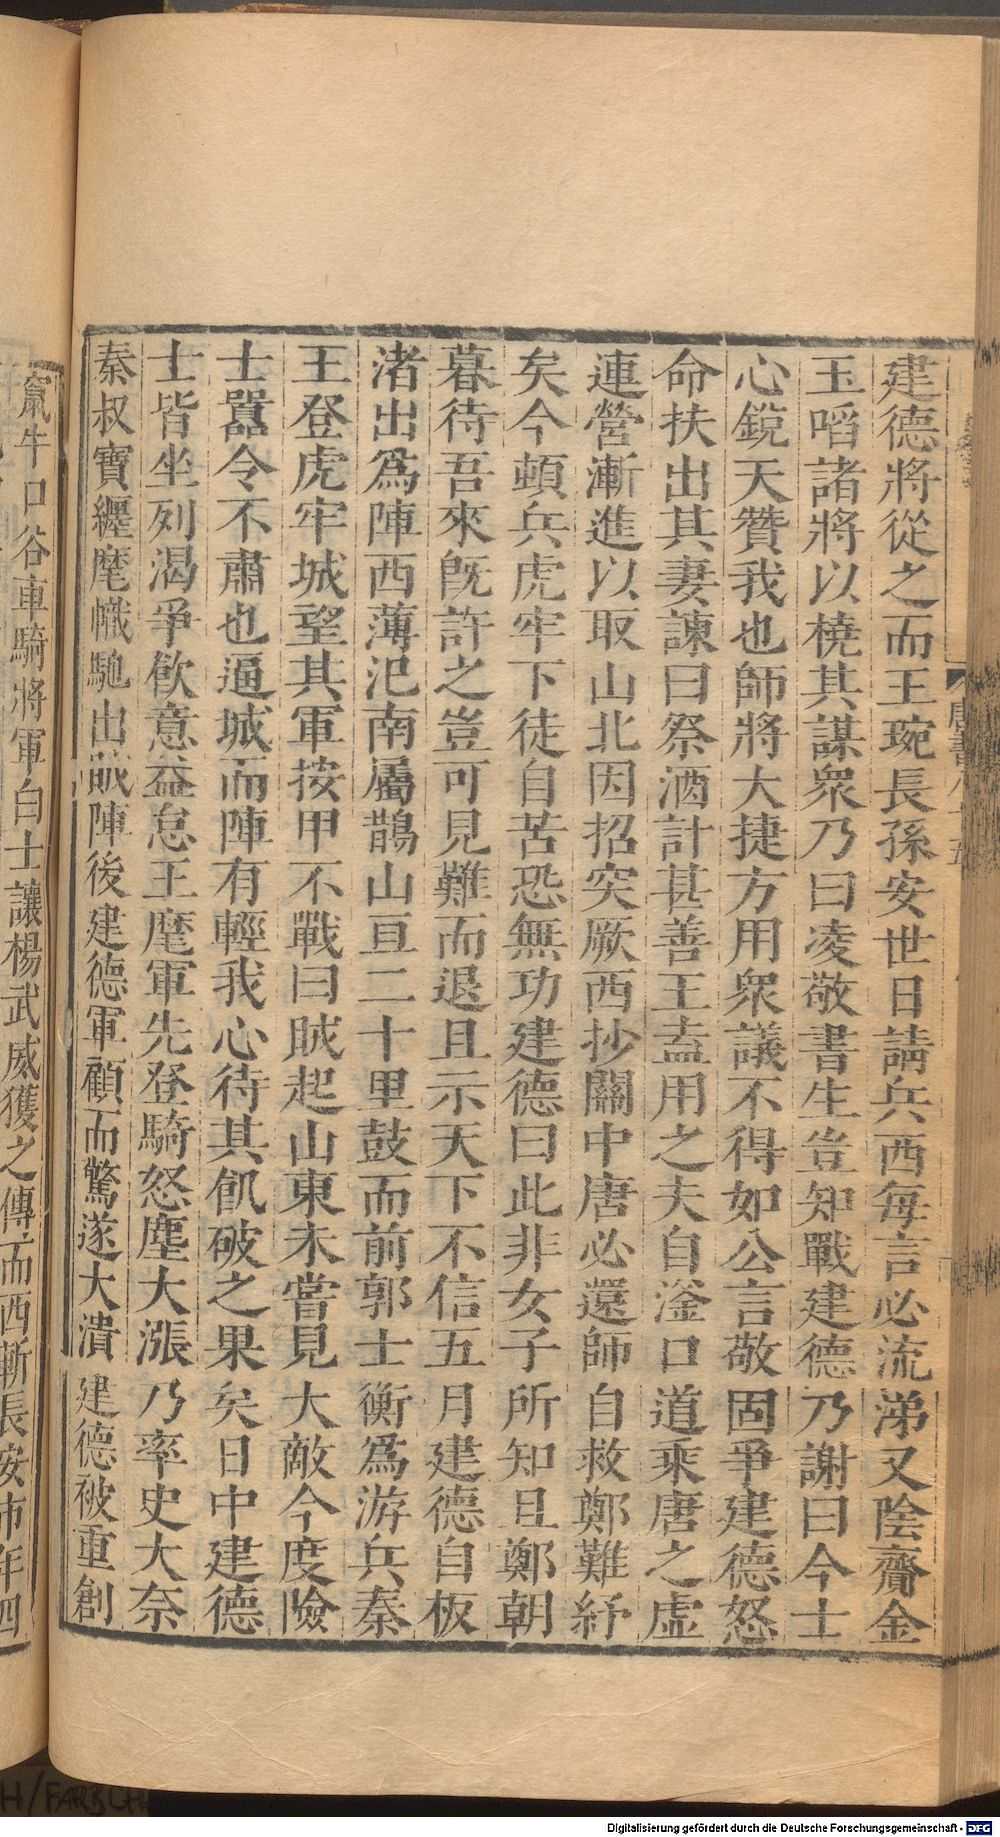 建德將從之而王琬長孫安世日請兵西每言必流涕又陰齎金
玉啗諸將以橈其謀衆乃曰凌敬書生豈知戰建德乃謝曰今士
心銳天贊我也師將大捷方用衆議不得如公言敬固爭建德怒
命扶出其妻諫曰祭酒計甚善王盍用之夫自滏口道乘唐之虛
連營漸進以取山北因招突厥西抄關中唐必還師自救鄭難紓
矣今頓兵虎牢下徒自苦恐無功建德曰此非女子所知且鄭朝
暮待吾來旣許之豈可見難而退且示天下不信五月建德自板
渚出爲陣西薄汜南屬鵲山亘二十里鼓而前郭士衡爲游兵秦
王登虎牢城望其軍按甲不戰曰賊起山東未嘗見大敵今度險
士囂令不肅也逼城而陣有輕我心待其飢破之果矣日中建德
士皆坐列渴爭飲意益怠王麾軍先登騎怒塵大漲乃率史大奈
秦叔寶纏麾幟馳出賊陣後建德軍顧而驚遂大潰建德被重創
竄牛口谷車騎將軍白士讓楊武威獲之傳而西斬長安市年四
唐書八十五
Digitalisierung gefördert durch die Deutsche Forschungsgemeinschaft - DFG